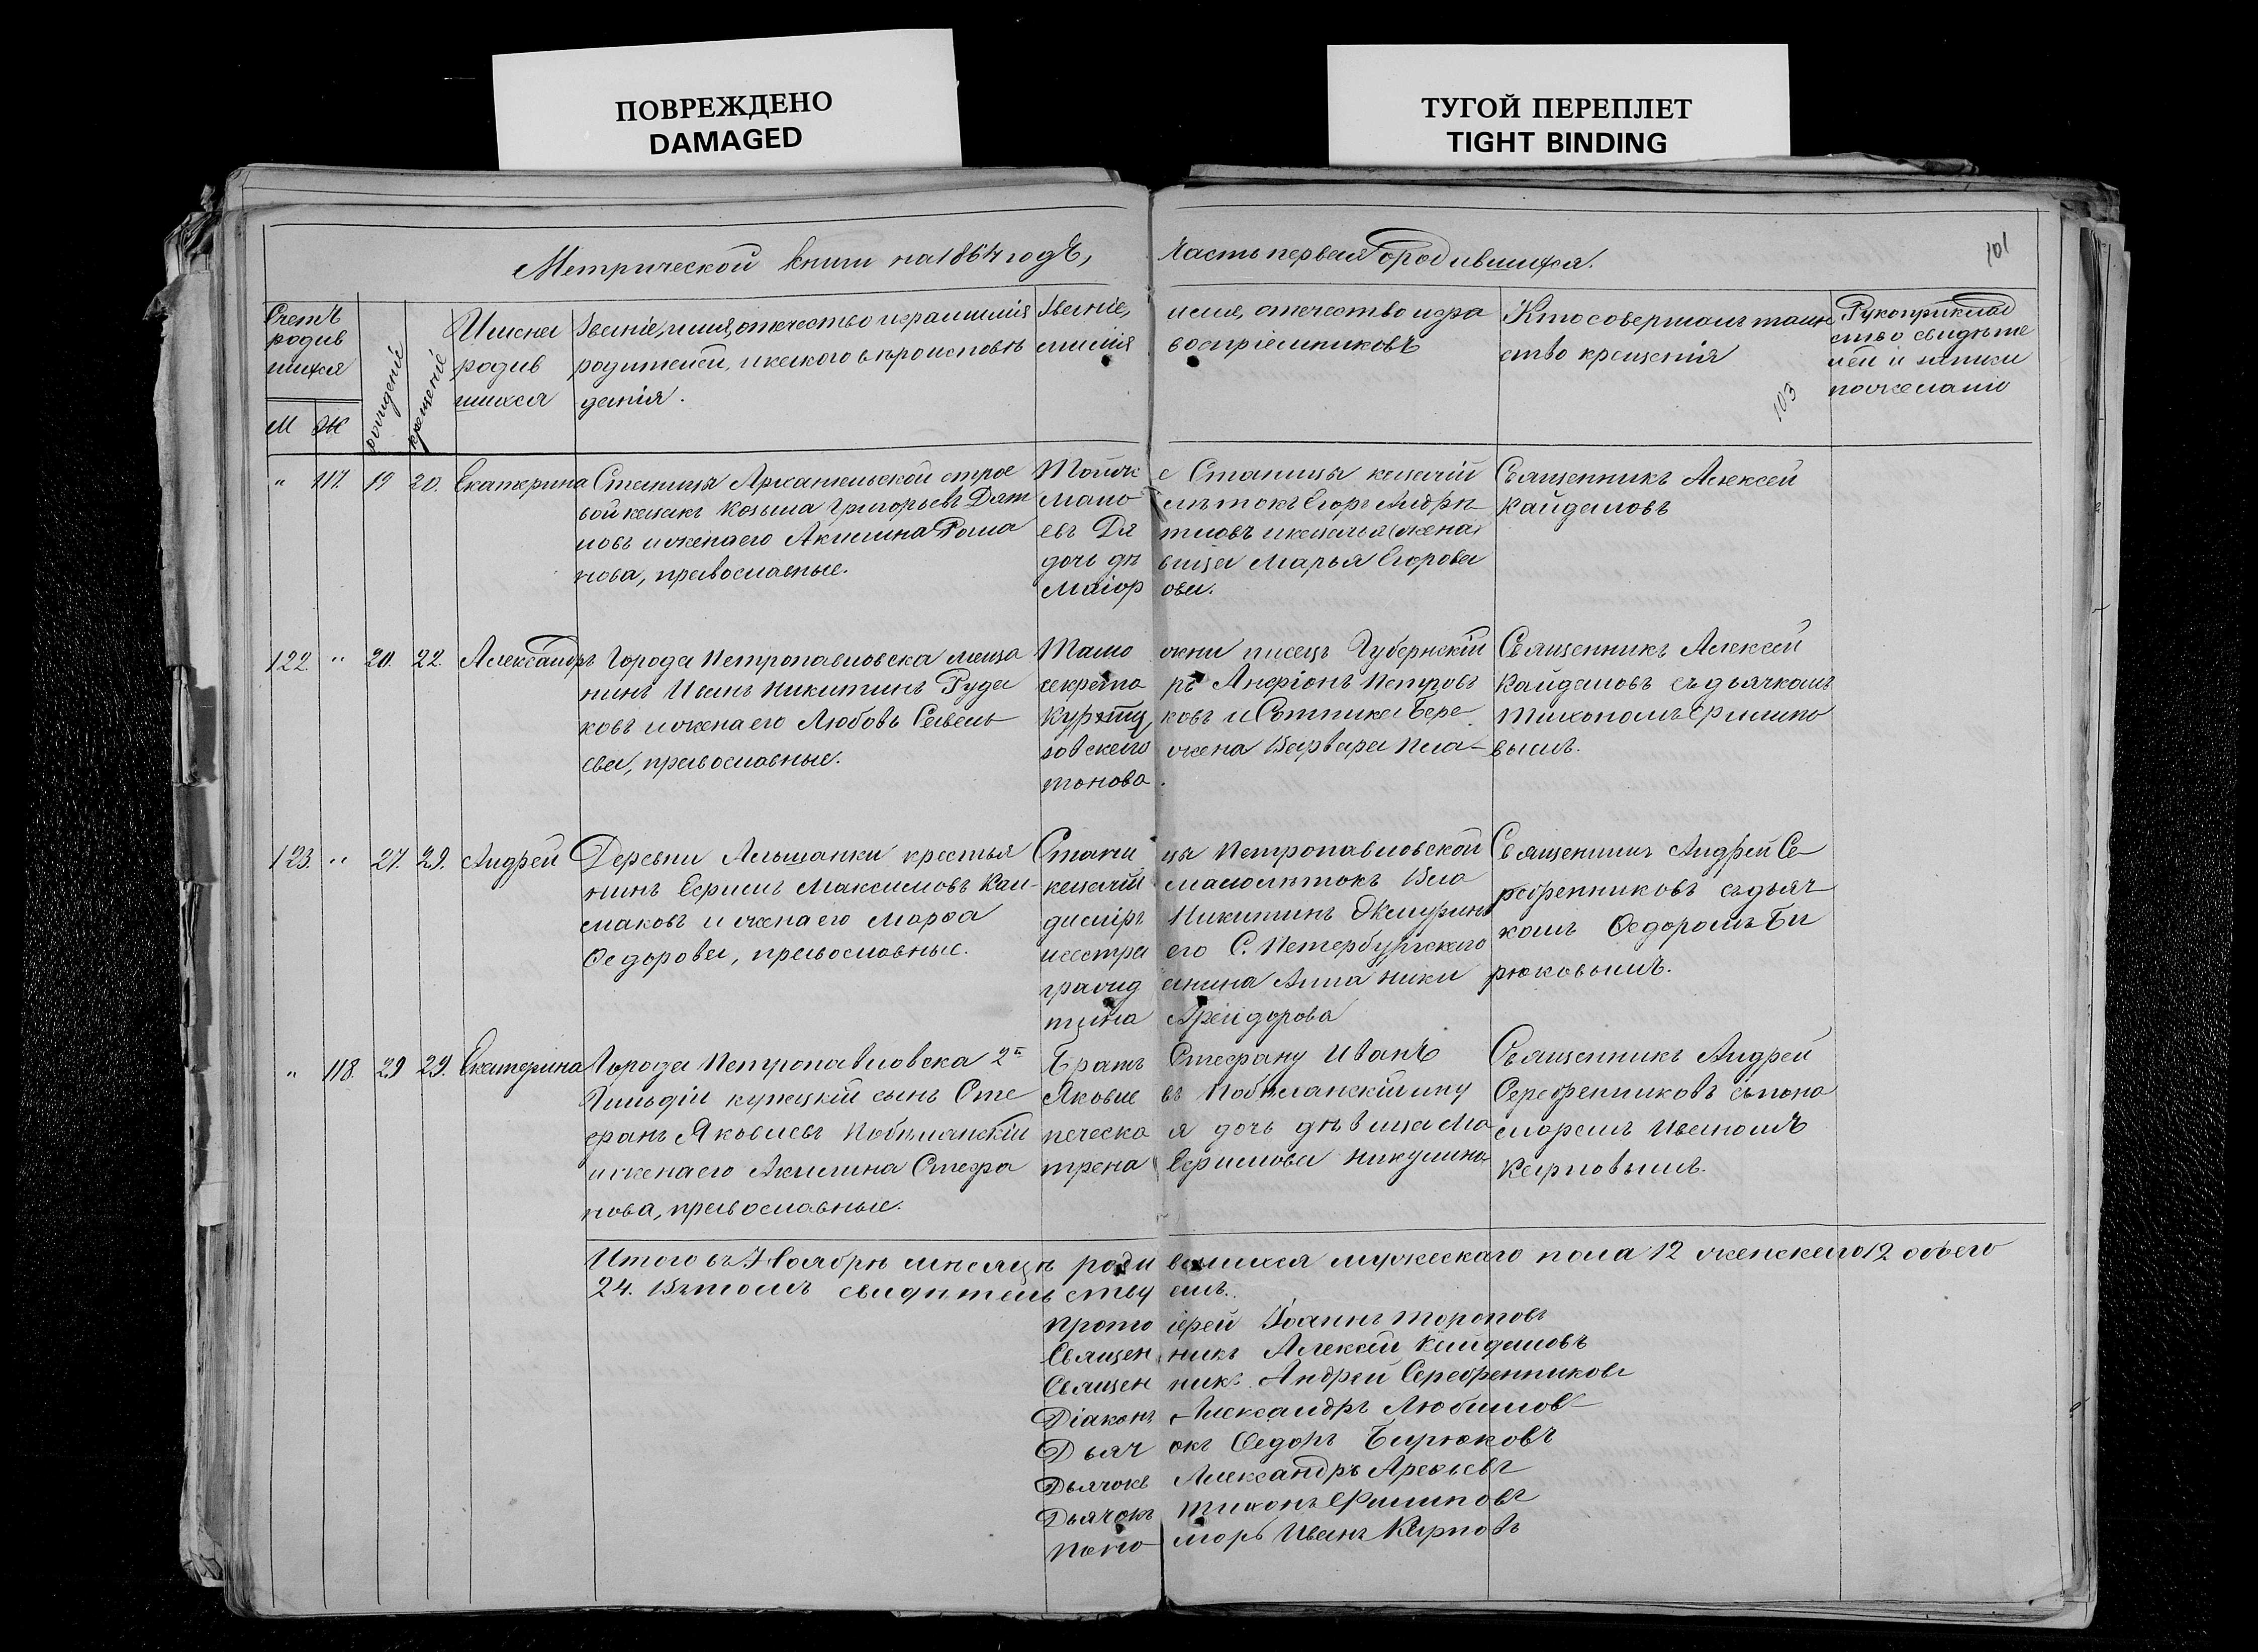 ПОВРЕЖДЕНО
DAMAGED
ТУГОЙ ПЕРЕПЛЕТ
TIGHT BINDING
Метрической книги на 1864 годъ, Часть первая о родившихся.
101
Счетъ
родив
шихся
М Ж
рождения
крещение
Имена
родив
шихся
Званіе, имя, отчество и фамилія
родителей, и какого вѣроисповѣ
данія.
Званіе, имя, отчество и фа
милія воспріемниковъ
Кто совершалъ таин
ство крещенія
103
Рукоприклад
ство свидѣте
лей и записи
по желанію
" 117. 19 20. Екатерина
Станицы Архангельской строе
вой казакъ Козьма Григорьевъ Дят
ловъ и жена его Акилина Рома
нова, православные.
Тойже Станицы казачій
мало лѣтокъ Егоръ Андрѣ
евъ Дятловъ и казачья жена
дочь дѣвица Марья Егорова
Маіорова.
Священникъ Алексей
Кайдаловъ
122. " 20. 22. Александръ
Города Петропавловска меща
нинъ Иванъ Никитинъ Руда
ковъ и жена его Любовь Савель
ева, православные.
Тамо жни писецъ Губернскій
секрета рь Анфіонъ Петровъ
ковъ и Сотника Бере
зовскаго жена Варвара Пла
тонова.
Священникъ Алексей
Кайдаловъ съ дьячкомъ
Тихономъ Филипо
вымъ.
123. " 27. 29. Андрей
Деревни крестья
нинъ Ефимъ Максимовъ Кал
маковъ и жена его Марфа
Ѳедорова, православные.
Стани цы Петропавловской
казачій малолѣтокъ Вла
диміръ Никитинъ
и сестра его С. Петербургскаго
гражд анина Анна Ники
тина
Священникъ Андрей Се
ребренниковъ съ дьяч
комъ Ѳедоромъ Би
рюковымъ.
" 118. 29 29. Екатерина
Города Петропавловска 2й
Гильдіи купецкій сынъ Сте
фанъ Яковлевъ Побѣманскій
и жена его Акилина Стефа
нова, православные.
Братъ Стефану Иванъ
Яковле въ Побѣманскій и ку
печеска я дочь дѣвица Ма
трена Ефимова Никулина
Священникъ Андрей
Серебренниковъ съ поно
маремъ Иваномъ
Карповымъ.
Итого въ Ноябрѣ мѣсяцѣ роди вшихся мужескаго пола 12 женскаго 12 обоего
24. Въ томъ свидѣтельству емъ.
Прото іерей Іоаннъ Тороповъ
Священ никъ Алексей Кайдаловъ
Священ никъ Андрей Серебренниковъ
Діаконъ Александръ Любимовъ
Дьяч окъ Ѳедоръ Бирюковъ
Дьячокъ Александръ Арефьевъ
Дьячокъ Тихонъ Филиповъ
Поно марь Иванъ Карповъ